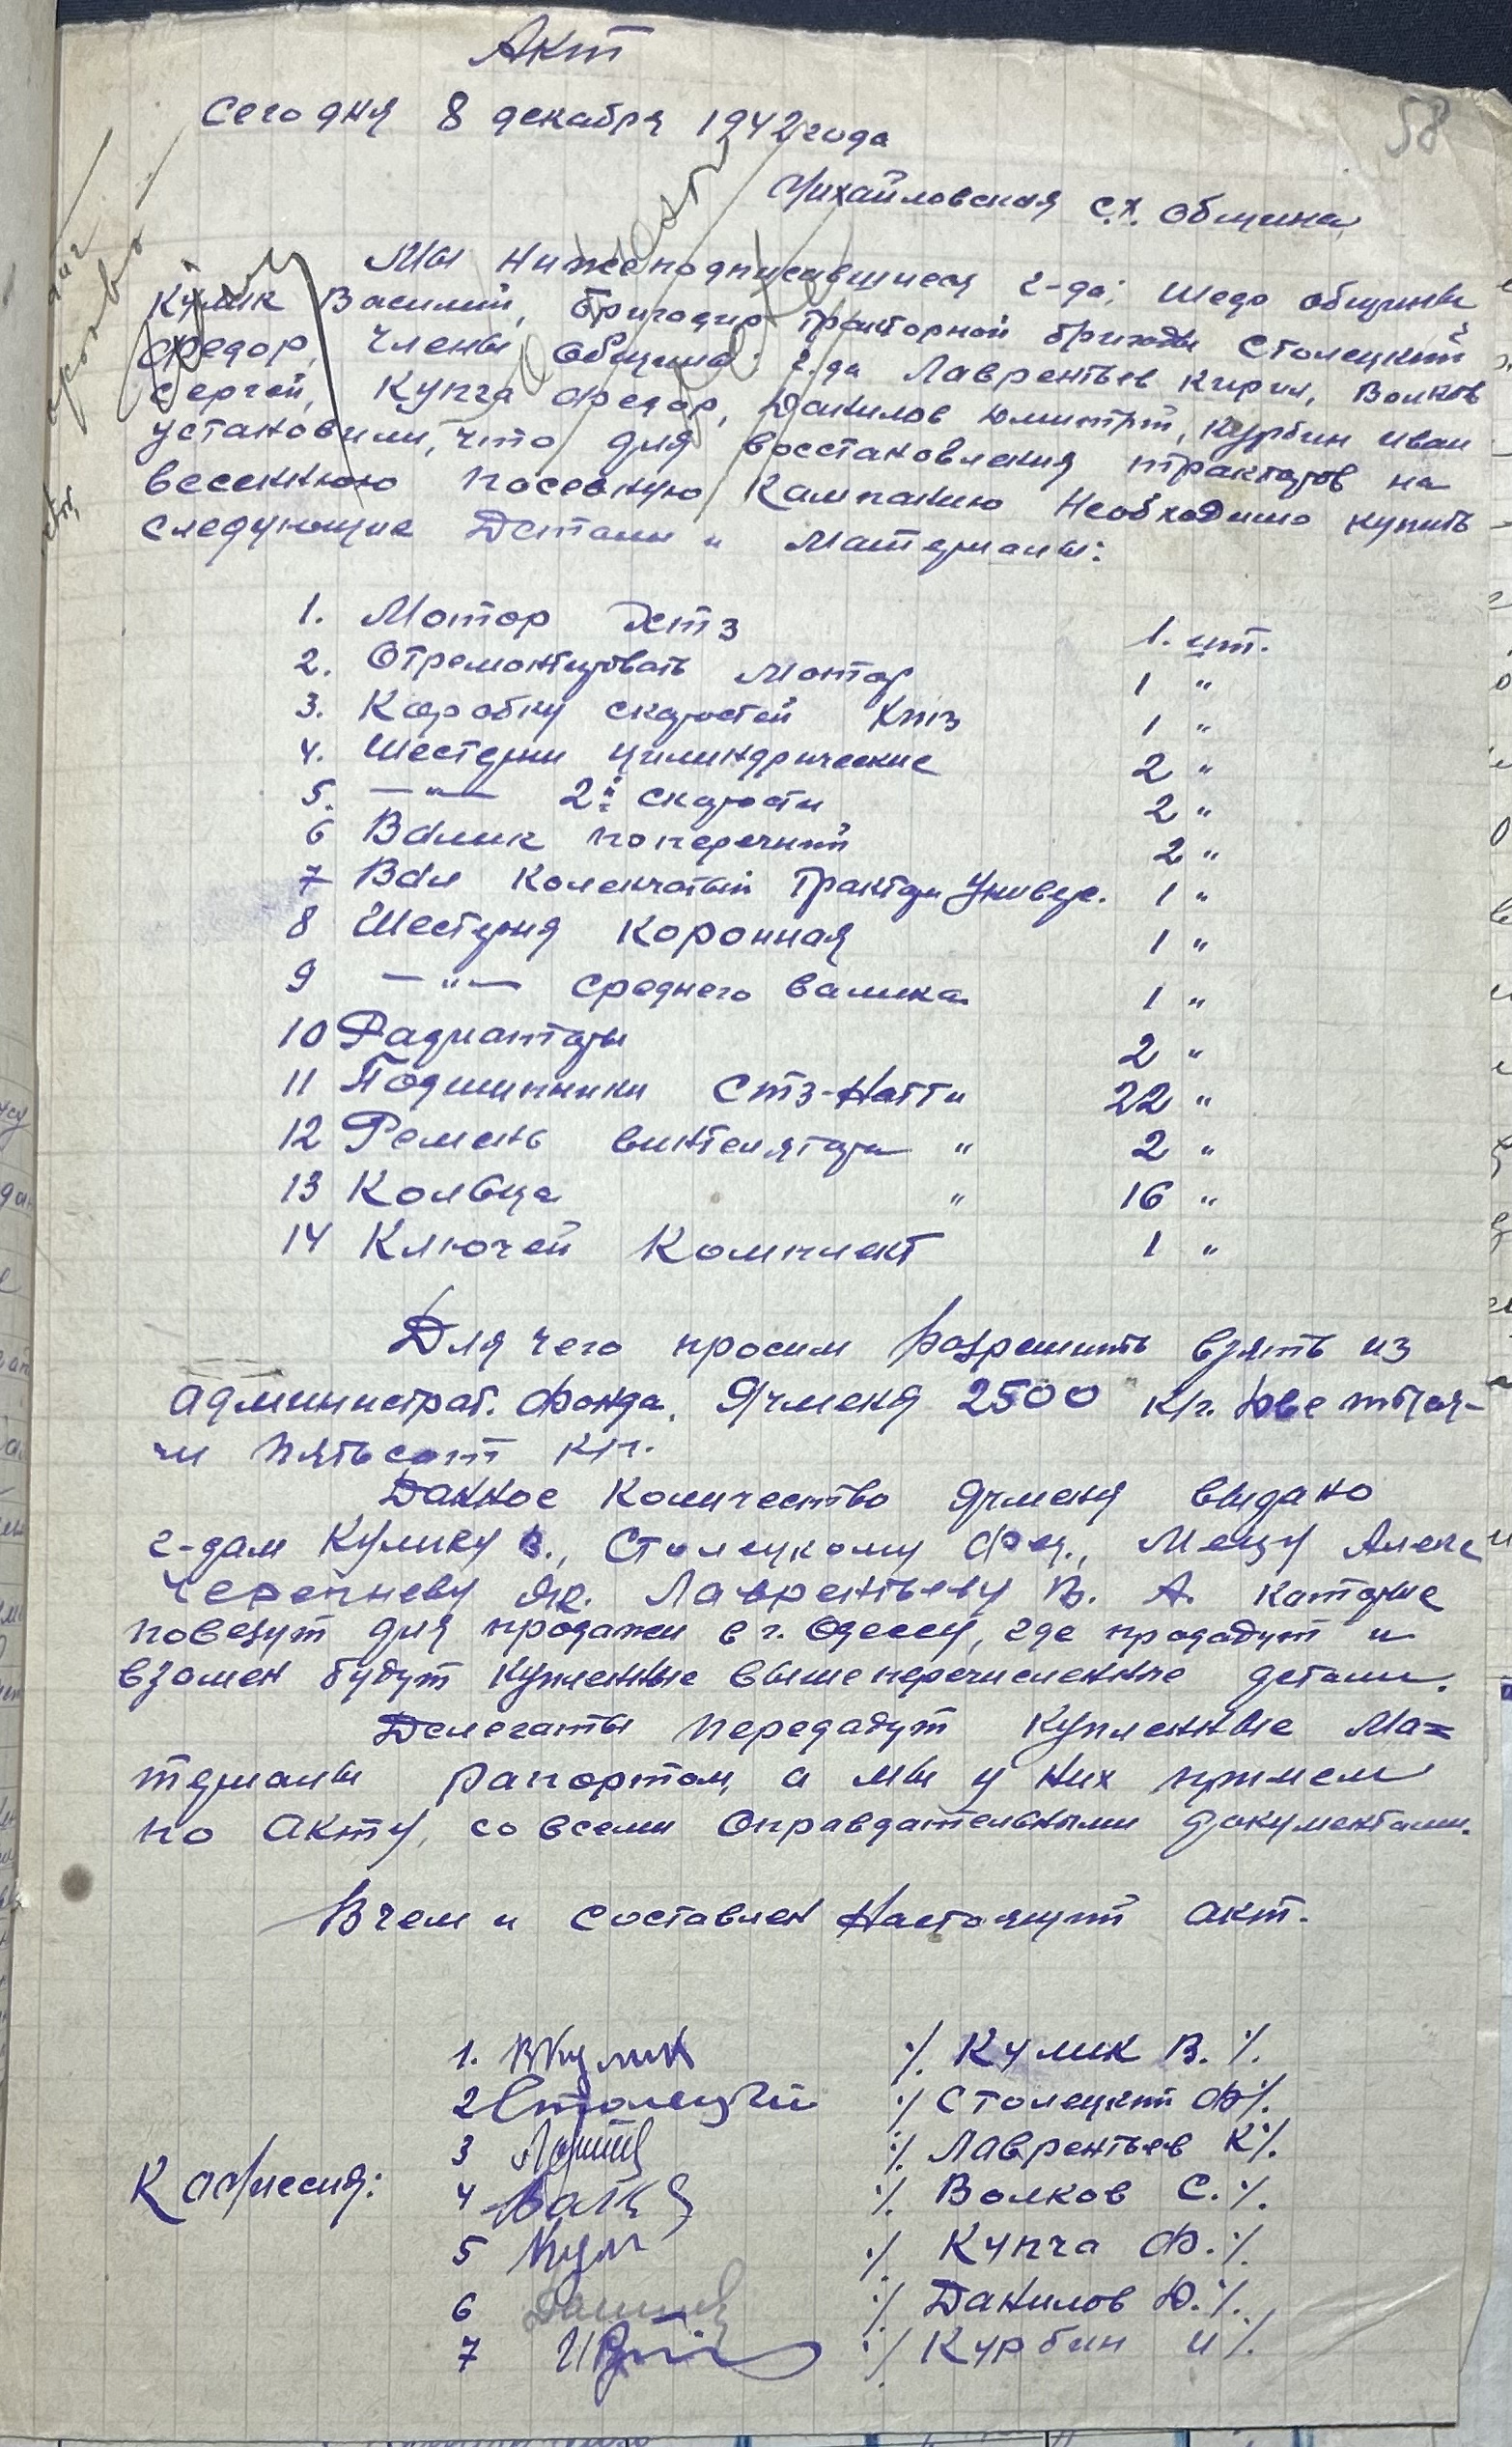 58
Акт
Сегодня 8 декабря 1942 года
Михайловская с.х. община
Мы нижеподписавшиеся г-да: Шедо общины
Кулик Василий, бригадир тракторной бригады Столецкий
Федор, члены общины: г.да Лаврентьев Кирил, Волков
Сергей, Купча Федор, Данилов Дмитрий, Курбин Иван
установили, что для восстановления тракторов на
весеннюю посевную кампанию необходимо купить
следующие детали и материалы:
1. Мотор ХТЗ 1. шт.
2. Отремонтировать мотор 1 "
3. Коробку скоростей ХТЗ 1 "
4. Шестерни цилиндрические 2 "
5. —"— 2й скорости 2 "
6 Валик поперечный 2 "
7 Вал коленчатый трактор Универ. 1 "
8 Шестерня коронная 1 "
9 —"— среднего валика 1 "
10 Радиаторы 2 "
11 Подшипники СТЗ-Натти 22 "
12 Ремень винтелятора " 2 "
13 Кольца " 16 "
14 Ключей комплект 1 "
Для чего просим разрешить взять из
администрат. фонда. Ячменя 2500 кгр. две тыся-
чи пятьсот кгр.
Данное количество ячменя выдано
г-дам Кулику В., Столецкому Фед., Мецу Алекс
Черепневу Як. Лаврентьеву В. А. которые
повезут для продажи в г. Одессу, где продадут и
взамен будут купленные вышеперечисленные детали.
Делегаты передадут купленные ма=
териалы рапортом, а мы у них примем
по акту, со всеми оправдательными документами.
В чем и составлен настоящий акт.
Комиссия:
1. ВКулик ·/. Кулик В. ·/.
2 Столецкий ·/. Столецкий Ф ·/.
3 ·/. Лаврентьев К ·/.
4 ·/. Волков С. ·/.
5 ·/. Купча Ф. ·/.
6 ·/. Данилов Д. ·/.
7 ·/. Курбин И ·/.